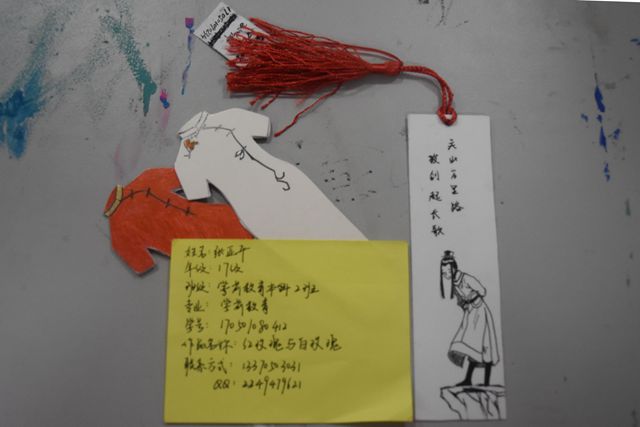 关山百里路
披剑起长歌
姓名：张亚平
年级：17级
班级：学前教育本科2班
专业：学前教育
学号：17050108 0412
作品名称：红玫瑰与白玫瑰
联系方式：1337050 3031
QQ：2249479621